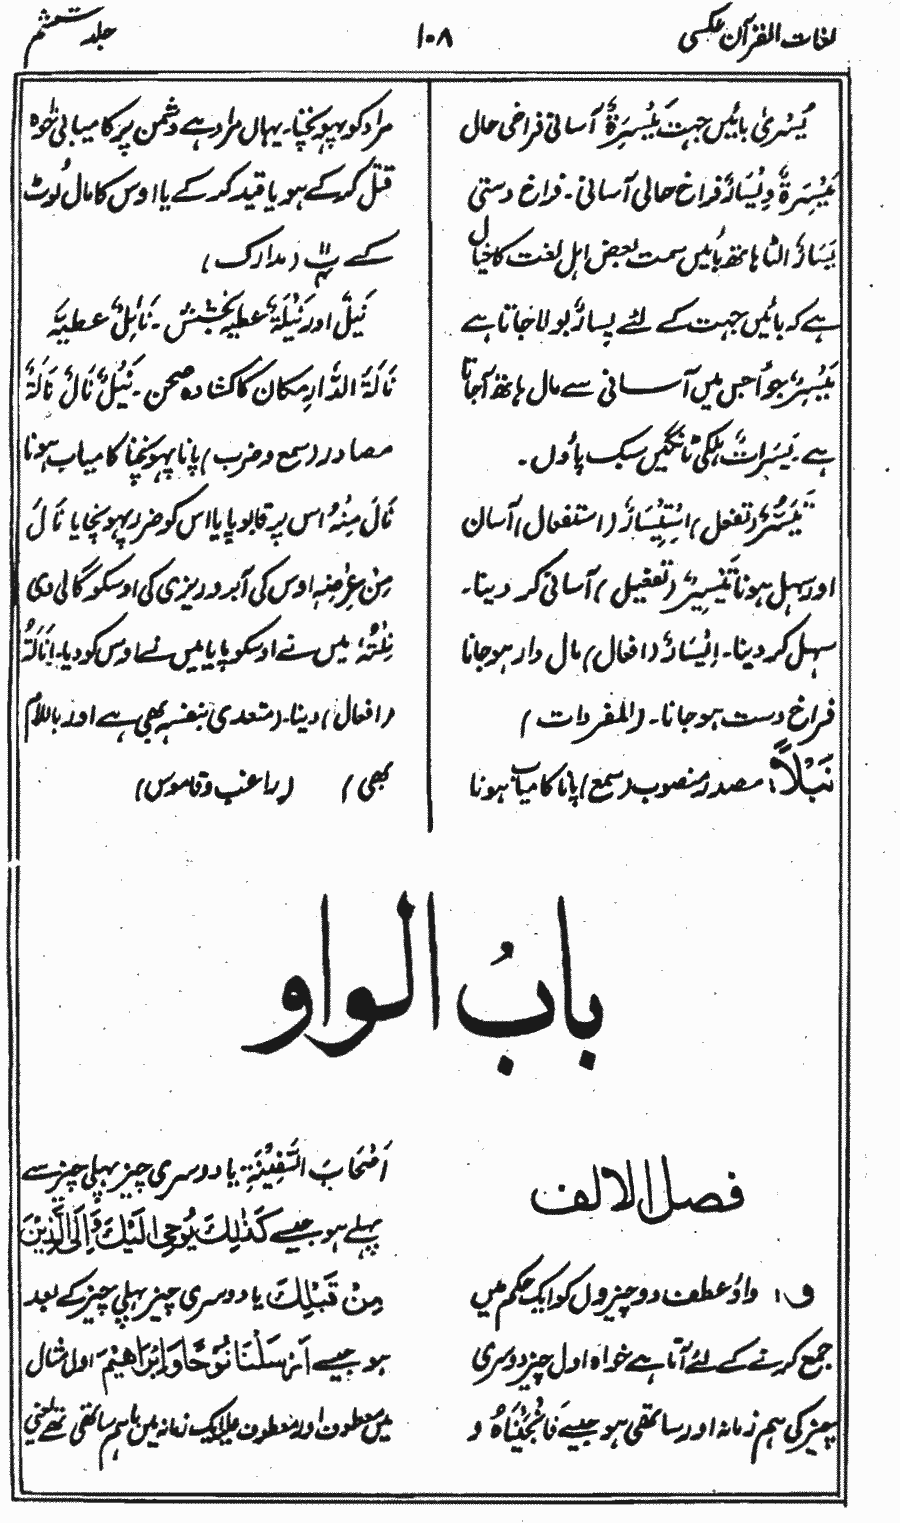 لغات القرآن عکسی
۱۰۸
جلد ششم
یُسْریٰ بائیں جہت مَیْسِرَۃٌ آسانی فراخی حال
مَیْسِرَۃٌ وِیْسَارٌ فراخ حالی آسانی۔ فراخ دستی
یَسَارٌ الٹا ہاتھ بائیں سمت بعض اہل لغت کا خیال
ہے کہ بائیں جہت کے لئے یسارٌ بولا جاتا ہے
مَیْسِرٌ جُوا جس میں آسانی سے مال ہاتھ آجاتا
ہے۔ یَسَرَاتٌ ہلکی ٹانگیں سبک پاؤں۔
تَیَسُّرٌ (تفعل) اِسْتِیْسَارٌ (استفعال) آسان
اور سہل ہونا تَیْسِیْرٌ (تفعیل) آسانی کر دینا۔
سہل کر دینا۔ اِیْسَارٌ (افعال) مال دار ہو جانا
فراخ دست ہو جانا۔ (المفردات)
نَیْلاً: مصدر منصوب (سمع) پانا کامیاب ہونا
مراد کو پہونچنا۔ یہاں مراد ہے دشمن پر کامیابی خواہ
قتل کر کے ہو یا قید کر کے یا اوس کا مال لُوٹ
کے (مدارک)
نَیْلٌ اور نَیْلَۃٌ عطیہ بخشش۔ نَائِلٌ عطیہ
نَالَۃُ الدَّارِ مکان کا کشادہ صحن۔ نَیْلٌ نَالٌ نَالَۃٌ
مصادر (سمع و ضرب) پانا پہونچنا کامیاب ہونا
نَالَ مِنْہُ اس پر قابو پایا اس کو ضرر پہونچایا نَالَ
مِنْ عِرْضِہٖ اوس کی آبرو ریزی کی اوسکو گالی دی
نِلْتُہٗ میں نے اوسکو پایا میں نے اوس کو دیا۔ اِنَالَۃٌ
(افعال) دینا۔ (متعدی بنفسہ بھی ہے اور باللام
بھی) (راغب و قاموس)
بابُ الواو
فصل الالف
و: واؤ عطف دو چیزوں کو ایک حکم میں
جمع کرنے کے لئے آتا ہے خواہ اول چیز دوسری
چیز کی ہم زمانہ اور ساتھی ہو جیسے فَاَنْجَیْنَاہُ وَ
اَصْحَابَ السَّفِیْنَۃِ یا دوسری چیز پہلی چیز سے
پہلے ہو جیسے کَذٰلِکَ یُوْحِیْ اِلَیْکَ وَ اِلَی الَّذِیْنَ
مِنْ قَبْلِکَ یا دوسری چیز پہلی چیز کے بعد
ہو جیسے اَرْسَلْنَا نُوْحًا وَ اِبْرَاہِیْمَ اول مثال
میں معطوف اور معطوف علیہ ایک زمانہ میں باہم ساتھی تھے یعنی